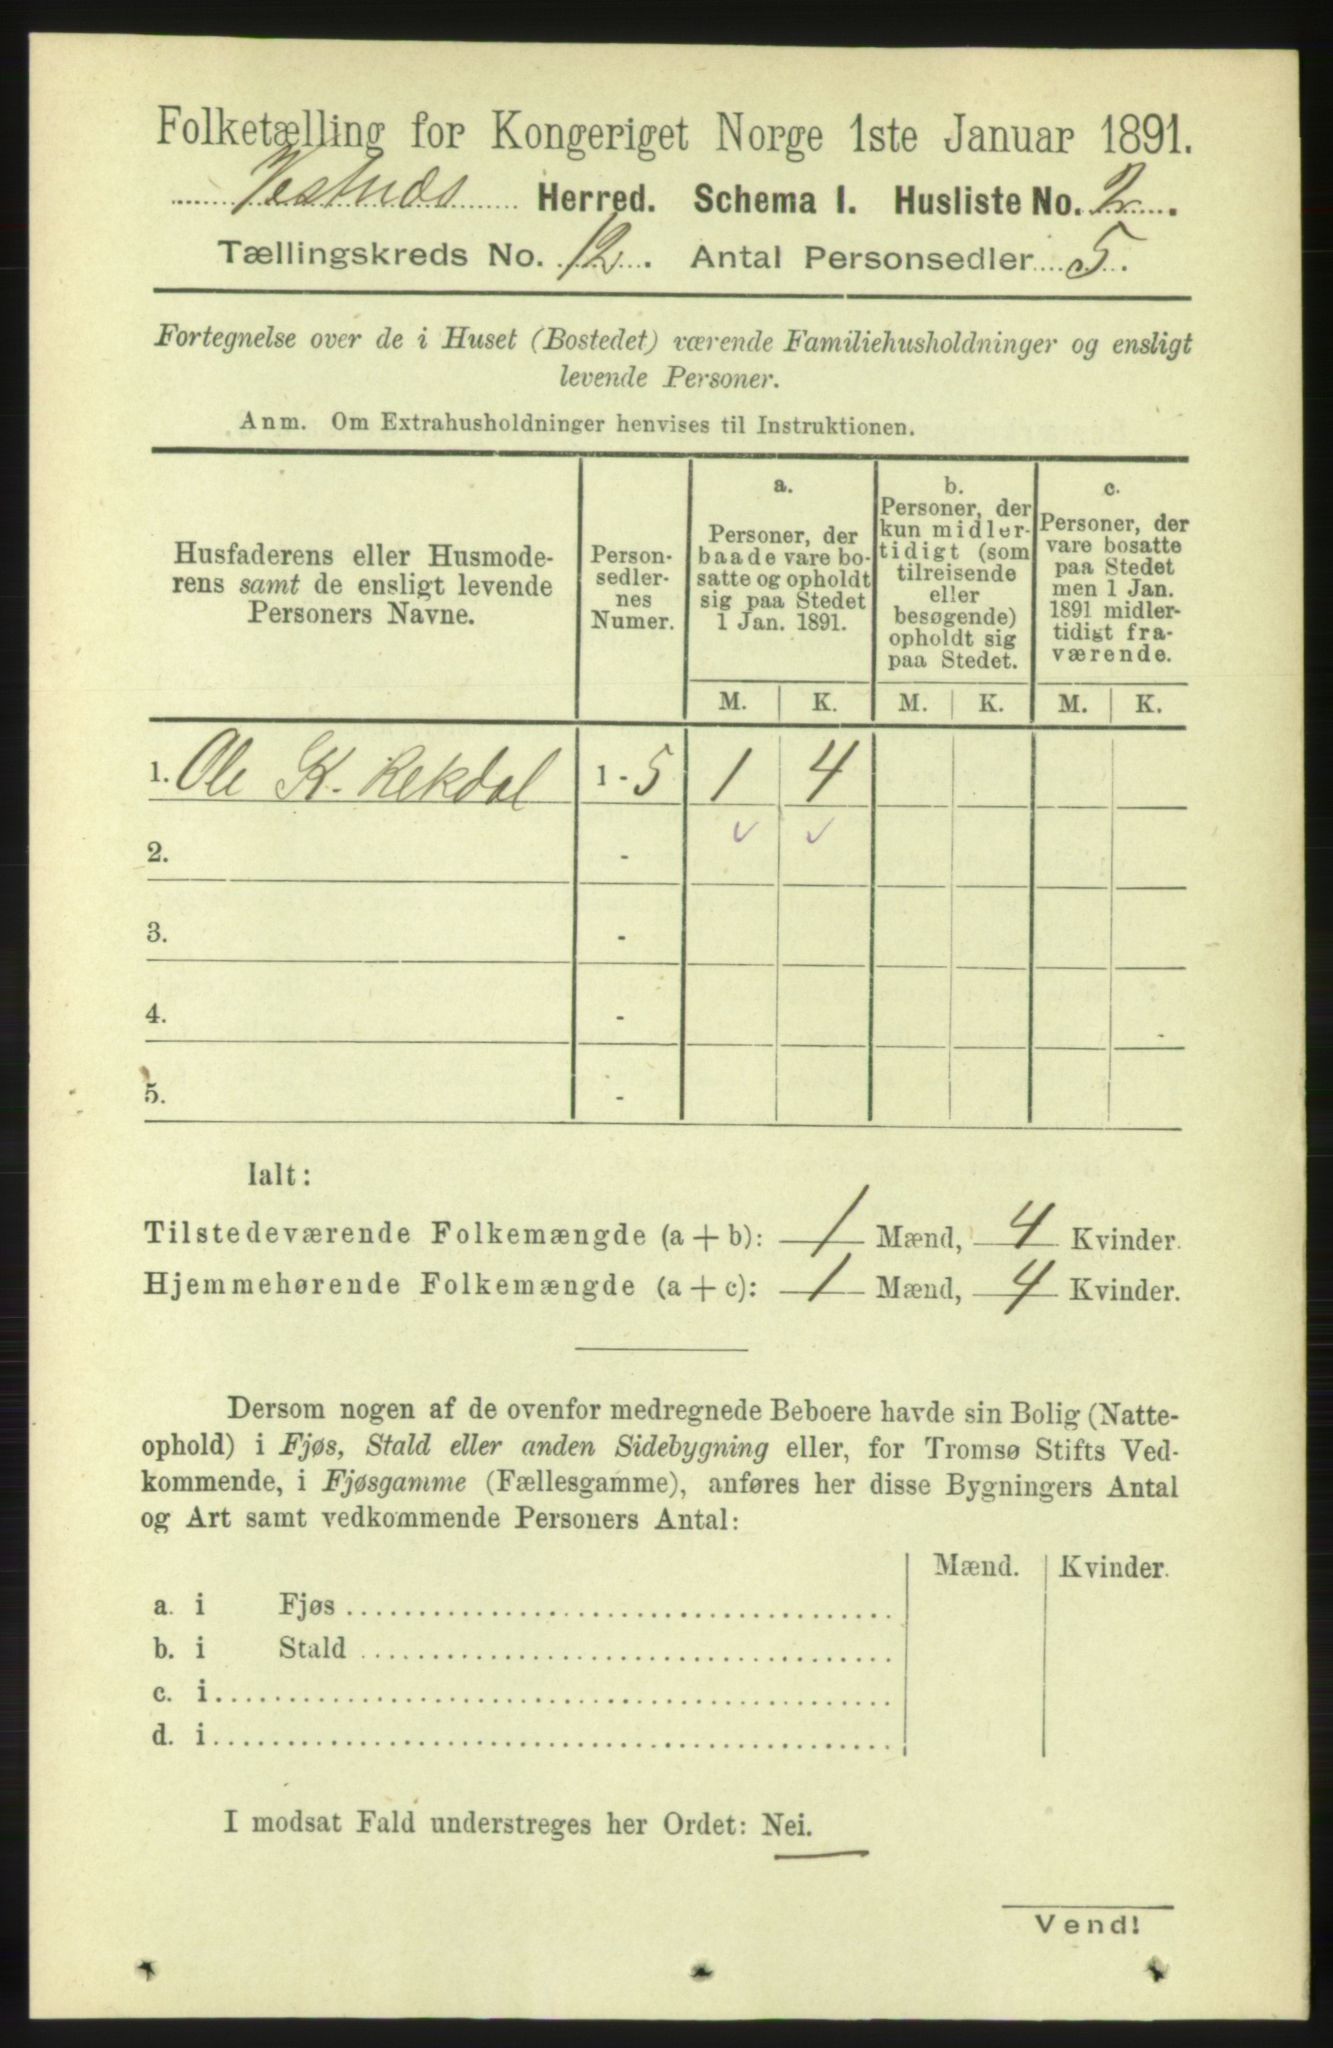 Folketælling for Kongeriget Norge 1ste Januar 1891.
Vestnæs Herred. Schema I. Husliste No. 2.
Tællingskreds No. 12. Antal Personsedler 5.
Fortegnelse over de i Huset (Bostedet) værende Familiehusholdninger og ensligt
levende Personer.
Anm. Om Extrahusholdninger henvises til Instruktionen.
Husfaderens eller Husmode-
rens samt de ensligt levende
Personers Navne.
Person-
sedler-
nes
Numer.
a.
Personer, der
baade vare bo-
satte og opholdt
sig paa Stedet
1 Jan. 1891.
b.
Personer, der
kun midler-
tidigt (som
tilreisende
eller
besøgende)
opholdt sig
paa Stedet.
c.
Personer, der
vare bosatte
paa Stedet
men 1 Jan.
1891 midler-
tidigt fra-
værende.
M. K. M. K. M. K.
1. Ole K. Rekdal 1 - 5 1 4
2. -
3. -
4. -
5. -
Ialt:
Tilstedeværende Folkemængde (a + b): 1 Mænd, 4 Kvinder.
Hjemmehørende Folkemængde (a + c): 1 Mænd, 4 Kvinder.
Dersom nogen af de ovenfor medregnede Beboere havde sin Bolig (Natte-
ophold) i Fjøs, Stald eller anden Sidebygning eller, for Tromsø Stifts Ved-
kommende, i Fjøsgamme (Fællesgamme), anføres her disse Bygningers Antal
og Art samt vedkommende Personers Antal:
Mænd. Kvinder.
a. i Fjøs
b. i Stald
c. i
d. i
I modsat Fald understreges her Ordet: Nei.
Vend!